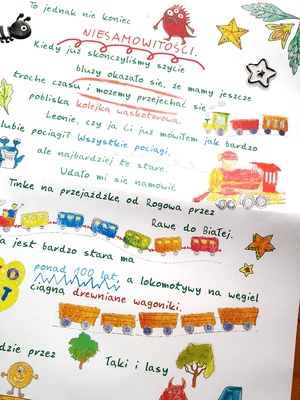 To jednak nie koniec
NIESAMOWITOŚCI.
Kiedy już skończyliśmy szycie
bluzy okazało się, że mamy jeszcze
trochę czasu i możemy przejechać się
pobliską kolejką wąskotorową.
Leonie, czy ja Ci już mówiłem jak bardzo
lubię pociągi? Wszystkie pociągi,
ale najbardziej te stare.
Udało mi się namówić
Tinkę na przejażdżkę od Rogowa przez
Rawę do Białej.
a jest bardzo stara ma
ponad 100 lat, a lokomotywy na węgiel
ciągną drewniane wagoniki.
dzie przez łąki i lasy